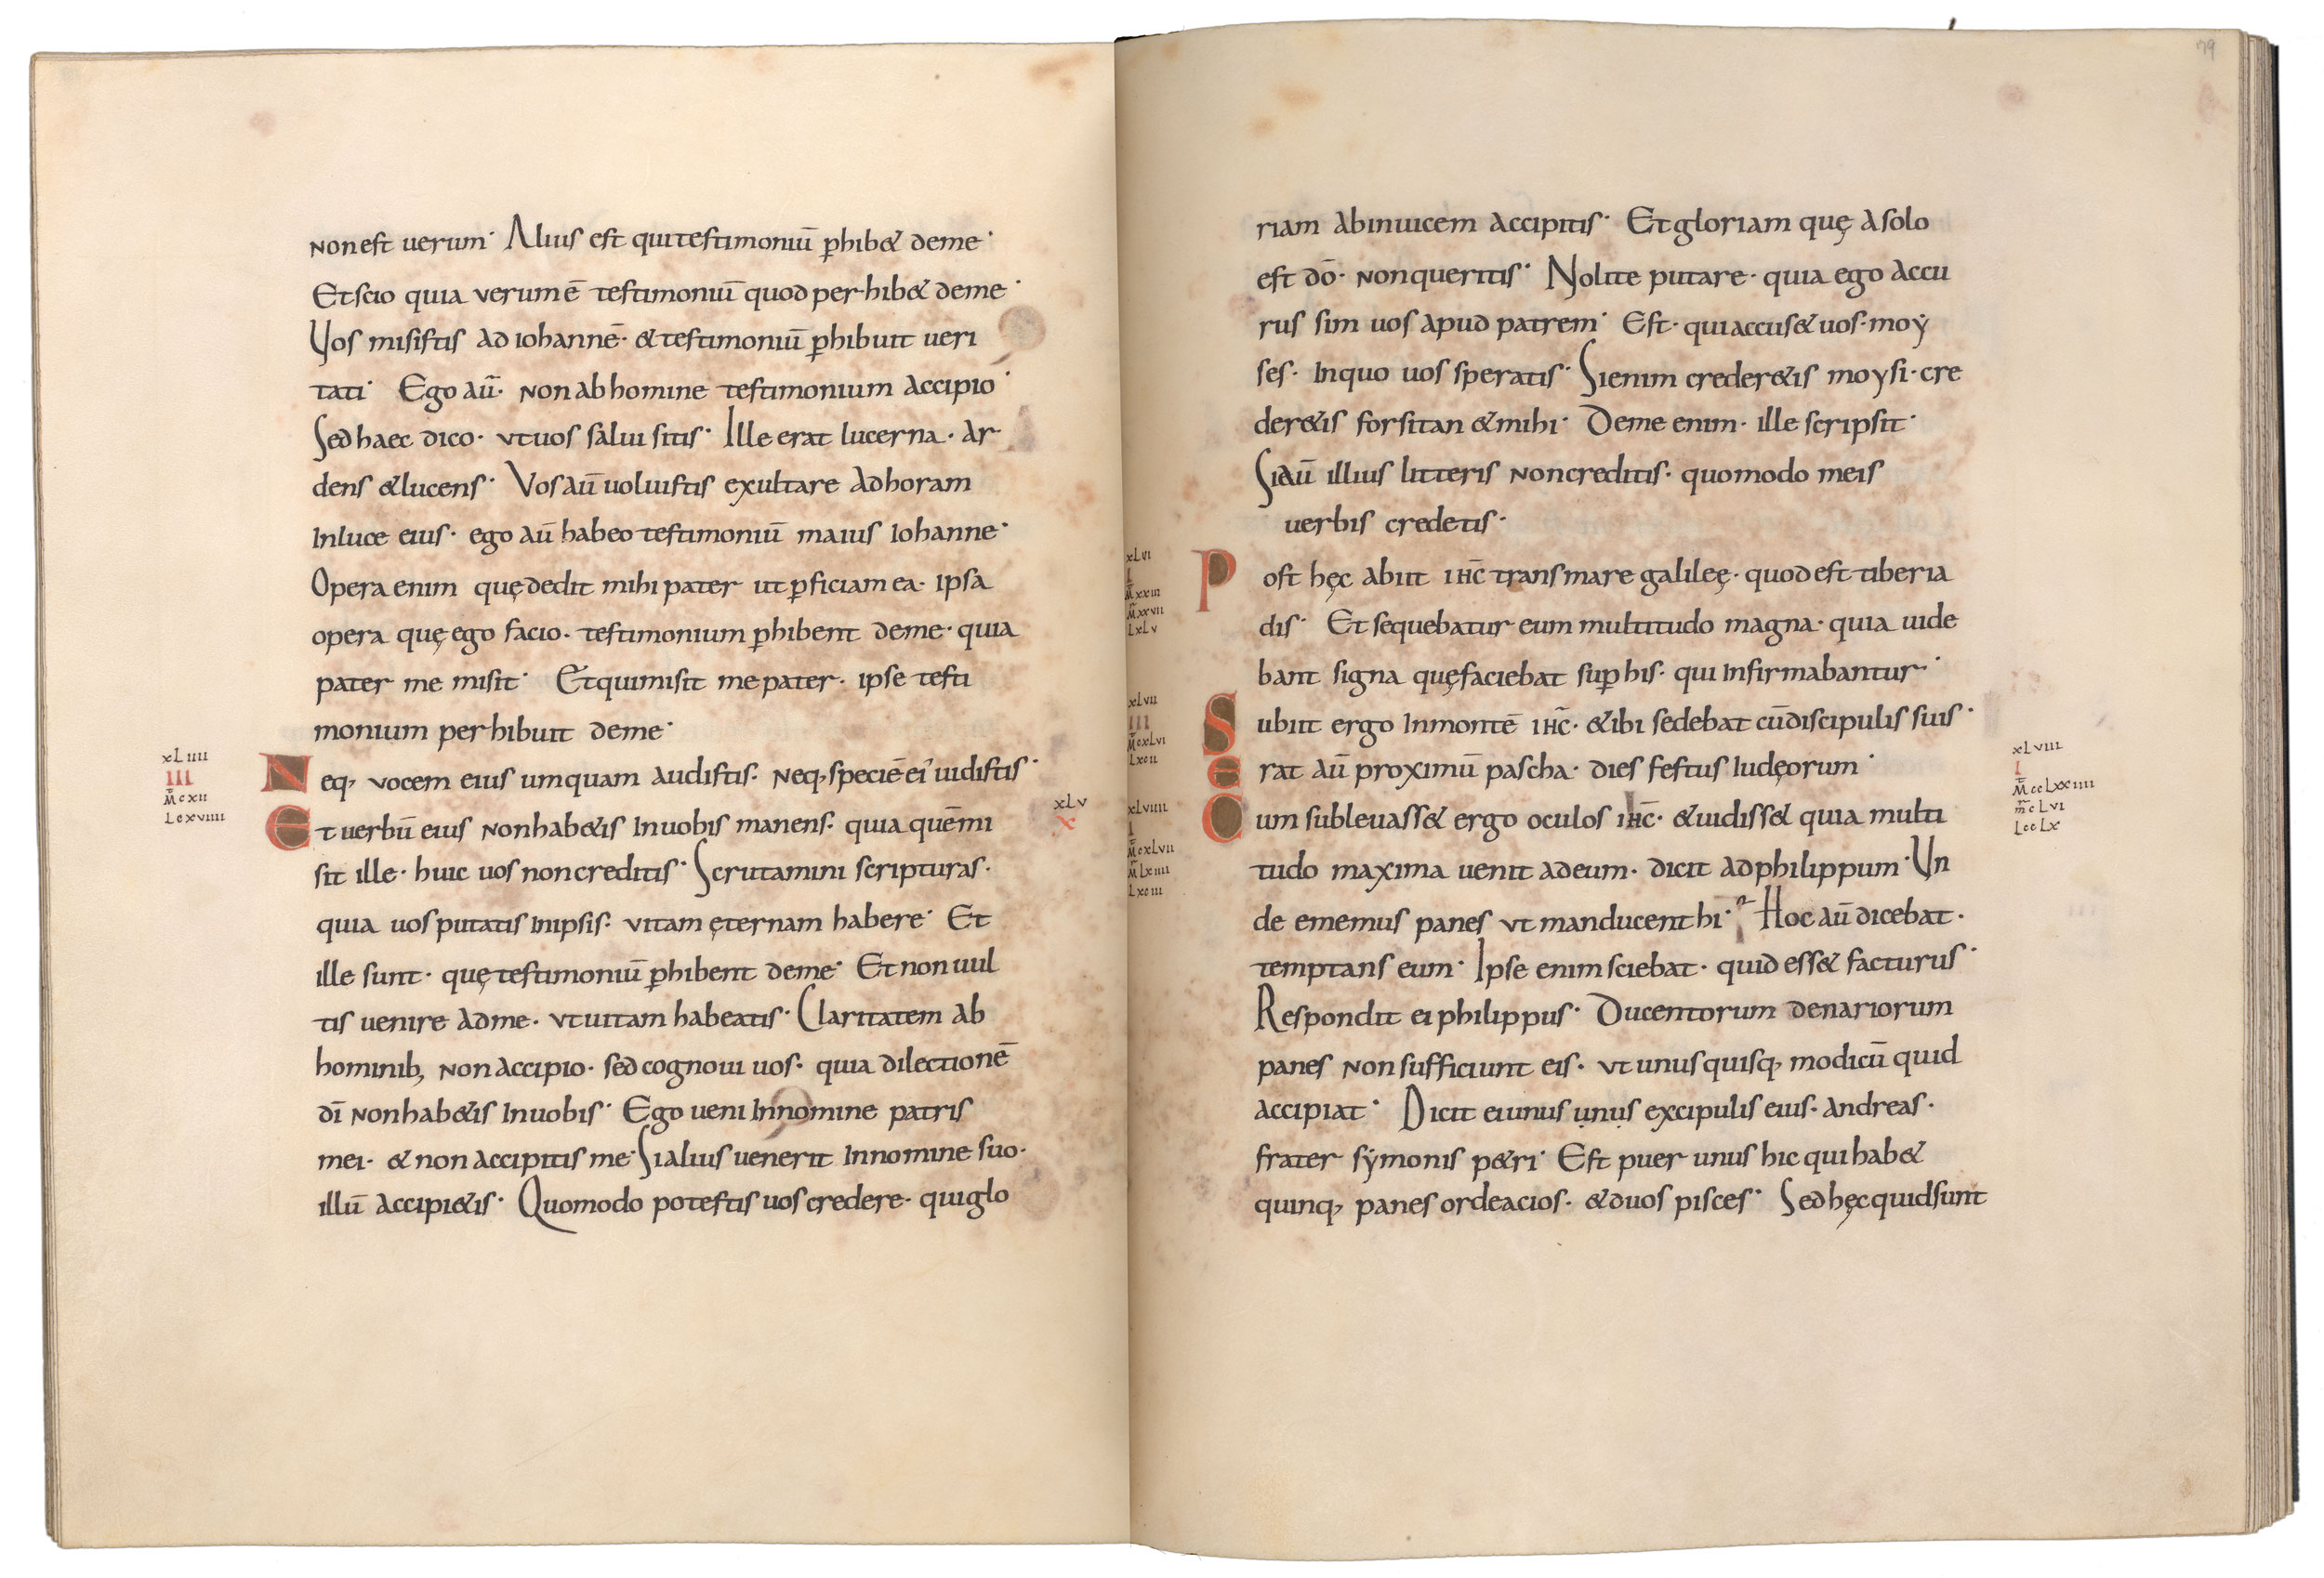 non est uerum· Alius est qui testimoniū p̱hib& deme·
Et scio quia verum ē testimoniū quod per hib& deme·
Vos misistis ad iohannē· & testimoniū p̱hibuit ueri
tati· Ego aū· non ab homine testimonium accipio·
Sed haec dico· vt uos salui sitis· Ille erat lucerna· ar
dens & lucens· Vos aū uoluistis exultare ad horam
In luce eius· ego aū habeo testimoniū maius Iohanne·
Opera enim quę dedit mihi pater ut p̱ficiam ea· ipsa
opera quę ego facio· testimonium p̱hibent deme· quia
pater me misit· Et qui misit me pater· ipse testi
monium perhibuit deme·
xLIIII
III
M̄ cxII
Lcxviiii
Neq, vocem eius umquam audistis· Neq, speciē ei' uidistis·
Et uerbū eius non hab&is In uobis manens· quia quē mi
xLv
x
sit ille· huic uos non creditis· Scrutamini scripturas·
quia uos putatis In ipsis· vitam ęternam habere· Et
ille sunt· quę testimoniū p̱hibent deme· Et non uul
tis uenire ad me· vt uitam habeatis· Claritatem ab
hominib, non accipio· sed cognoui uos· quia dilectionē
dī non hab&is In uobis· Ego ueni In nomine patris
mei· & non accipitis me· Si alius uenerit In nomine suo·
illū accipi&is· Quomodo potestis uos credere· qui glo
79
riam ab inuicem accipitis· Et gloriam quę a solo
est dō· non queritis· Nolite putare· quia ego accu
rus sim uos apud patrem· Est· qui accus& uos· moẏ
ses· In quo uos speratis· Si enim creder&is moysi· cre
der&is forsitan & mihi· Deme enim· ille scripsit·
Si aū illius litteris non creditis· quomodo meis
uerbis credetis·
xLvI
I
M̄ xxIII
M̄ xxvII
LxLv
Post hęc abiit ihc̄ trans mare galileę· quod est tiberia
dis· Et sequebatur eum multitudo magna· quia uide
bant signa quę faciebat sup̱ his· qui Infirmabantur·
xLvII
III
M̄ cxLvI
LxcII
Subiit ergo In montē ihc̄· & ibi sedebat cū discipulis suis·
Erat aū proximū pascha· dies festus Iudęorum·
xLvIII
I
M̄ ccLxxIIII
m̄ cLvI
LccLx
xLvIIII
I
M̄ cxLvII
M̄ LxIIII
LxcIII
Cum subleuass& ergo oculos ihc̄· & uidiss& quia multi
tudo maxima uenit ad eum· dicit ad philippum· Vn
de ememus panes vt manducent hi· Hoc aū dicebat·
temptans eum· Ipse enim sciebat· quid ess& facturus·
Respondit ei philippus· Ducentorum denariorum
panes non sufficiunt eis· vt unus quisq, modicū quid
accipiat· Dicit ei unus ụnụs ex cipulis eius· andreas·
frater sẏmonis p&ri· Est puer unus hic qui hab&
quinq, panes ordeacios· & duos pisces· Sed hęc quid sunt